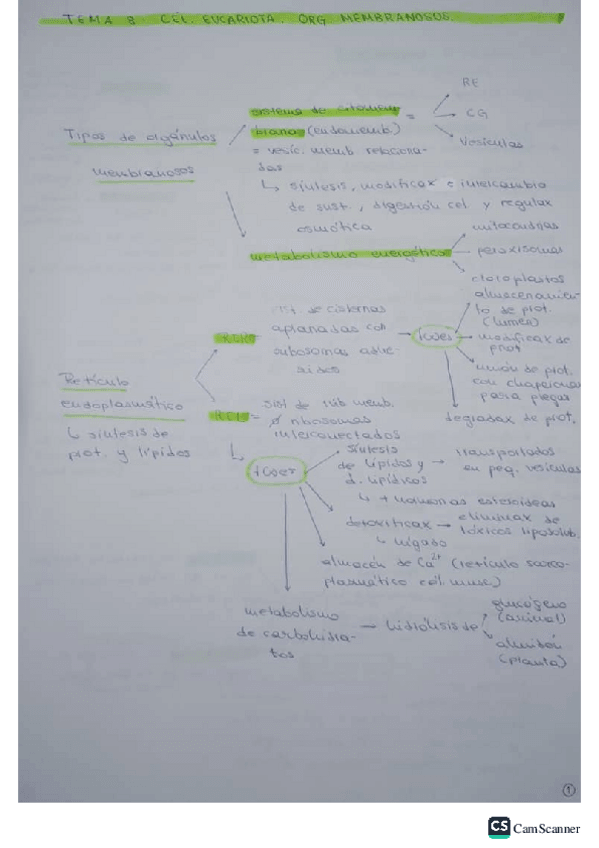 TEMA 8 CEL. EUCARIOTA. ORG MEMBRANOSOS.
Tipos de orgánulos
membranosos
sistema de citomem
brana (endomemb.) =
= vesic. memb relaciona-
das
RE
CG
Vesículas
↳ síntesis, modificax e intercambio
de sust., digestión cel y regulax
osmótica
metabolismo energético
mitocondrias
peroxisomas
cloroplastos
Retículo
endoplasmático
↳ síntesis de
prot. y lípidos
RER
de cisternas
aplanadas con
ribosomas adhe-
ridos
almacenamien-
to de prot.
(lumen)
modificax de
prot
unión de prot.
con chaperonas
para plegar
degradax de prot.
REL =
sist de túb memb.
ø ribosomas
interconectados
síntesis
de lípidos y → transportados
d. lipídicos en peq. vesículas
↳ + hormonas esteroideas
detoxificax → eliminax de
tóxicos liposolub.
↳ hígado
almacén de Ca²⁺ (retículo sarco-
plasmático cél. musc.)
metabolismo
de carbohidra-
tos
— hidrólisis de
glucógeno
(animal)
almidón
(planta)
1
CS CamScanner